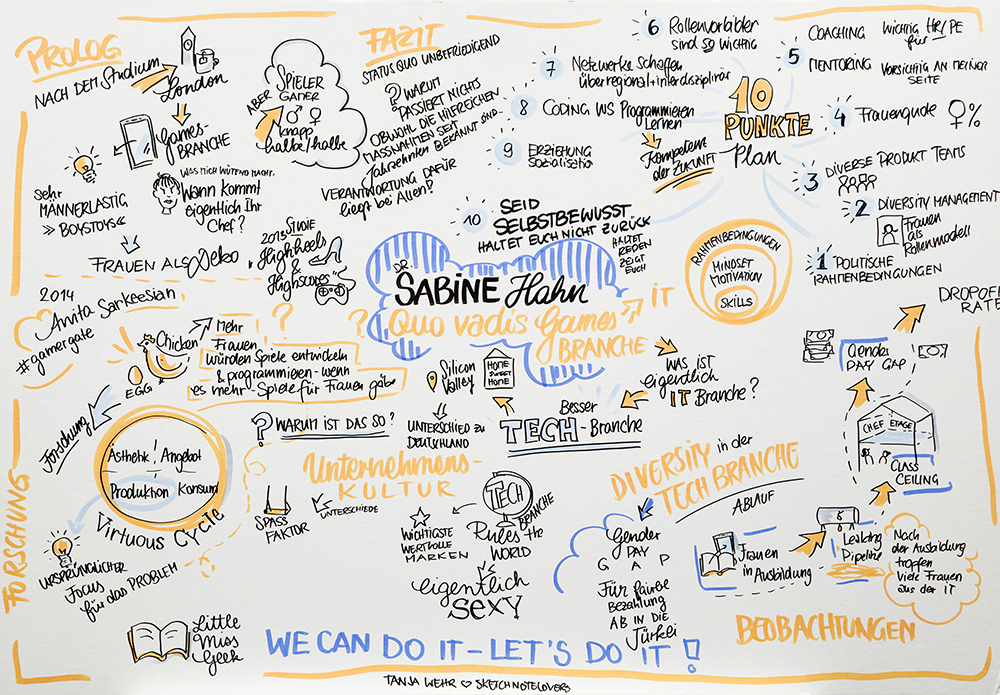 PROLOG
NACH DEM Studium
London
Games-
BRANCHE
sehr
MÄNNERLASTIG
»BOYSTOYS«
WAS MICH WÜTEND MACHT:
Wann kommt
eigentlich Ihr
Chef?
FRAUEN ALS Deko
2013 STUDIE
HighHeels
&
HighScores
ABER
SPIELER
GAMER
knapp
halbe/halbe
FAZIT
STATUS QUO UNBEFRIEDIGEND
? WARUM
PASSIERT NICHTS
OBWOHL DIE HILFREICHEN
MASSNAHMEN SEIT
Jahrzehnten BEKANNT SIND
VERANTWORTUNG DAFÜR
liegt bei Allen!?
10
PUNKTE
Plan
1 POLITISCHE
RAHMENBEDINGUNGEN
2 DIVERSITY MANAGEMENT
Frauen
als
Rollenmodell
3 DIVERSE PRODUKT TEAMS
4 Frauenquote %
5 COACHING WICHTIG HR/PE
für
MENTORING VORSICHTIG AN MEINER
SEITE
6 Rollenvorbilder
sind so WICHTIG
7 Netzwerke Schaffen
überregional+interdisziplinär
8 CODING WS Programmieren
Lernen
Kompetenz
der ZUKUNFT
9 ERZIEHUNG
Sozialisation
10 SEID
SELBSTBEWUSST
HALTET EUCH NICHT ZURÜCK
HALTET
REDEN
ZEIGT
EUCH
DR.
SABINE Hahn
Quo vadis Games
BRANCHE
IT
RAHMENBEDINGUNGEN
MINDSET
MOTIVATION
SKILLS
WAS IST
eigentlich
IT Branche?
Besser
TECH-Branche
HOME
SWEET
HOME
Silicon
Valley
UNTERSCHIED ZU
DEUTSCHLAND
2014
Anita Sarkeesian
#gamergate
Chicken
EGG
Mehr
Frauen
würden Spiele entwickeln
& programmieren-wenn
es mehr-Spiele für Frauen gäbe
? ?
? WARUM IST DAS SO?
FORSCHUNG
Forschung
Ästhetik Angebot
Produktion Konsum
Virtuous Cycle
URSPRÜNGLICHER
Focus
für das PROBLEM
Little
Miss
Geek
Unternehmens-
KULTUR
SPASS
FAKTOR
UNTERSCHIEDE
WICHTIGSTE
WERTVOLLE
MARKEN
TECH
BRANCHE
Rules the
WORLD
eigentlich
SEXY
DIVERSITY in der
TECH BRANCHE
ABLAUF
Gender
PAY
GAP
Für faire
Bezahlung
AB IN DIE
Türkei
Frauen
in Ausbildung
Leaking
Pipeline
Nach
der Ausbildung
tropfen
viele Frauen
aus der IT
CHEF ETAGE
GLASS
CEILING
Gender
PAY GAP
DROPOFF
RATE
BEOBACHTUNGEN
WE CAN DO IT – LET'S DO IT!
TANJA WEHR ♡ SKETCHNOTELOVERS